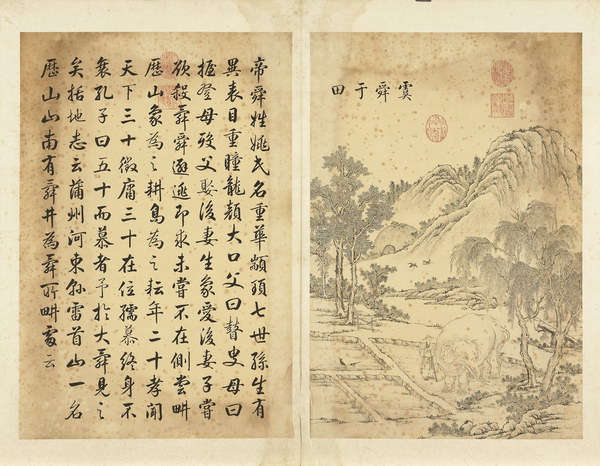 虞舜于田
帝舜姓姚氏名重華顓頊七世孫生有
異表目重瞳龍顏大口父曰瞽叟母曰
握登母歿父娶後妻生象愛後妻子嘗
欲殺舜舜逃即求未嘗不在側嘗畊
歷山象為之耕鳥為之耘年二十孝聞
天下三十徵庸三十在位孺慕終身不
衰孔子曰五十而慕者予於大舜見之
矣括地志云蒲州河東縣雷首山一名
歷山山南有舜井為舜所畊處云